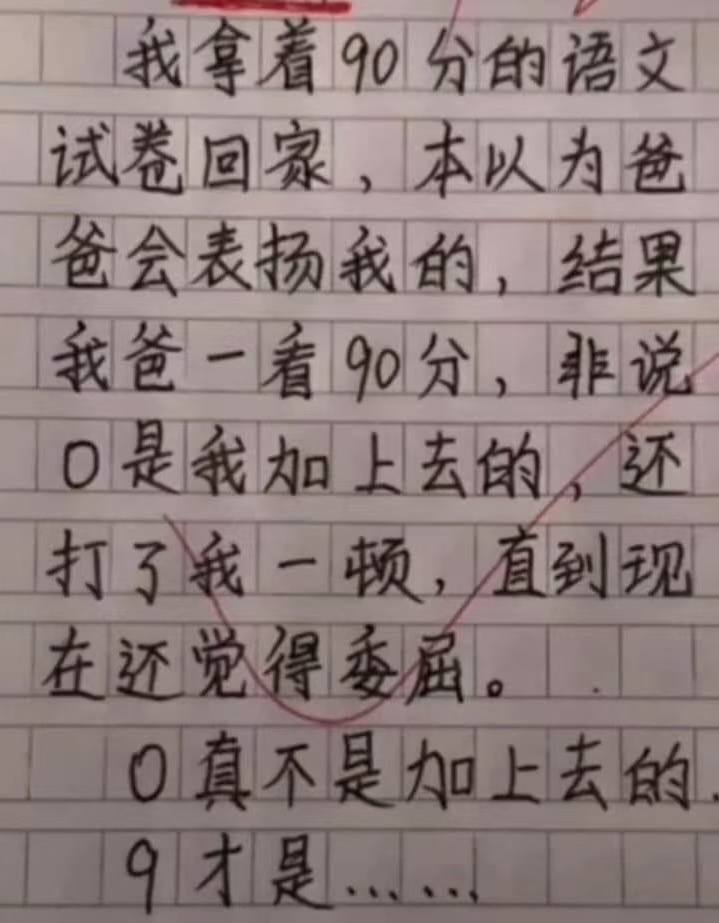 我拿着90分的语文
试卷回家，本以为爸
爸会表扬我的，结果
我爸一看90分，非说
0是我加上去的，还
打了我一顿，直到现
在还觉得委屈。
0真不是加上去的.
9才是……